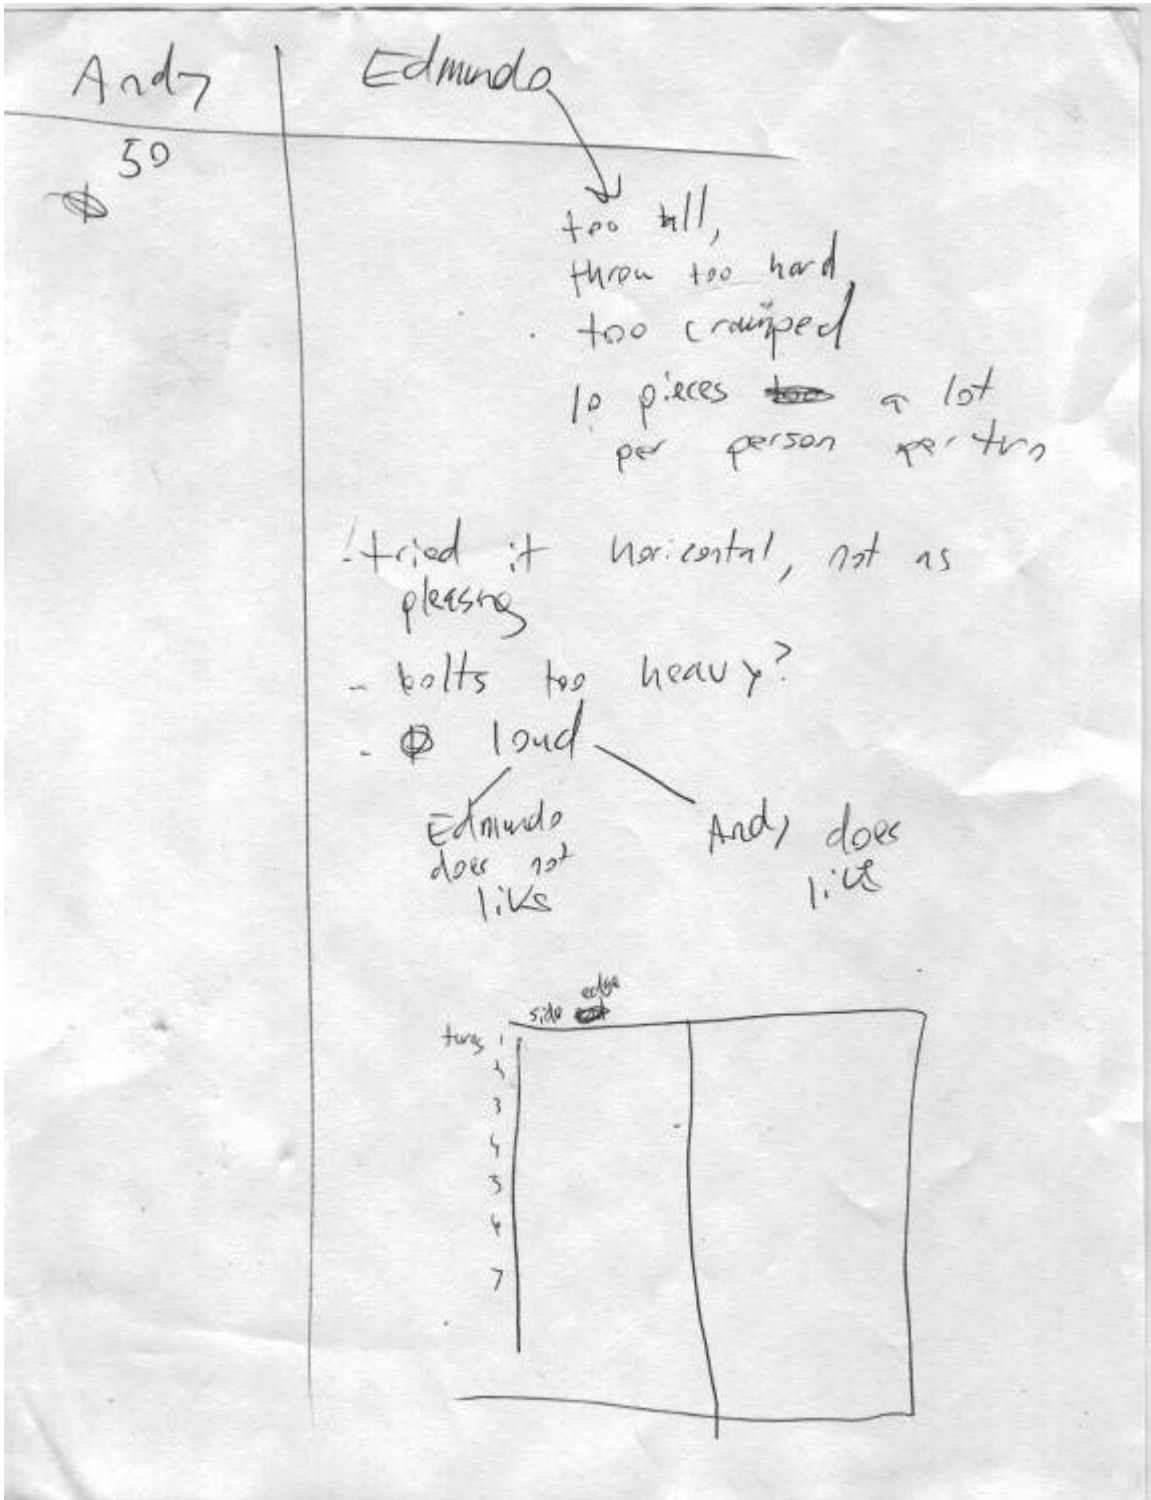 Andy
Edmundo
50
too tall,
throw too hard,
too cramped
10 pieces a lot
per person per turn
- tried it horizontal, not as
pleasing
- bolts too heavy?
- loud
Edmundo
does not
like
Andy does
like
edge
side
turns 1
2
3
4
5
6
7